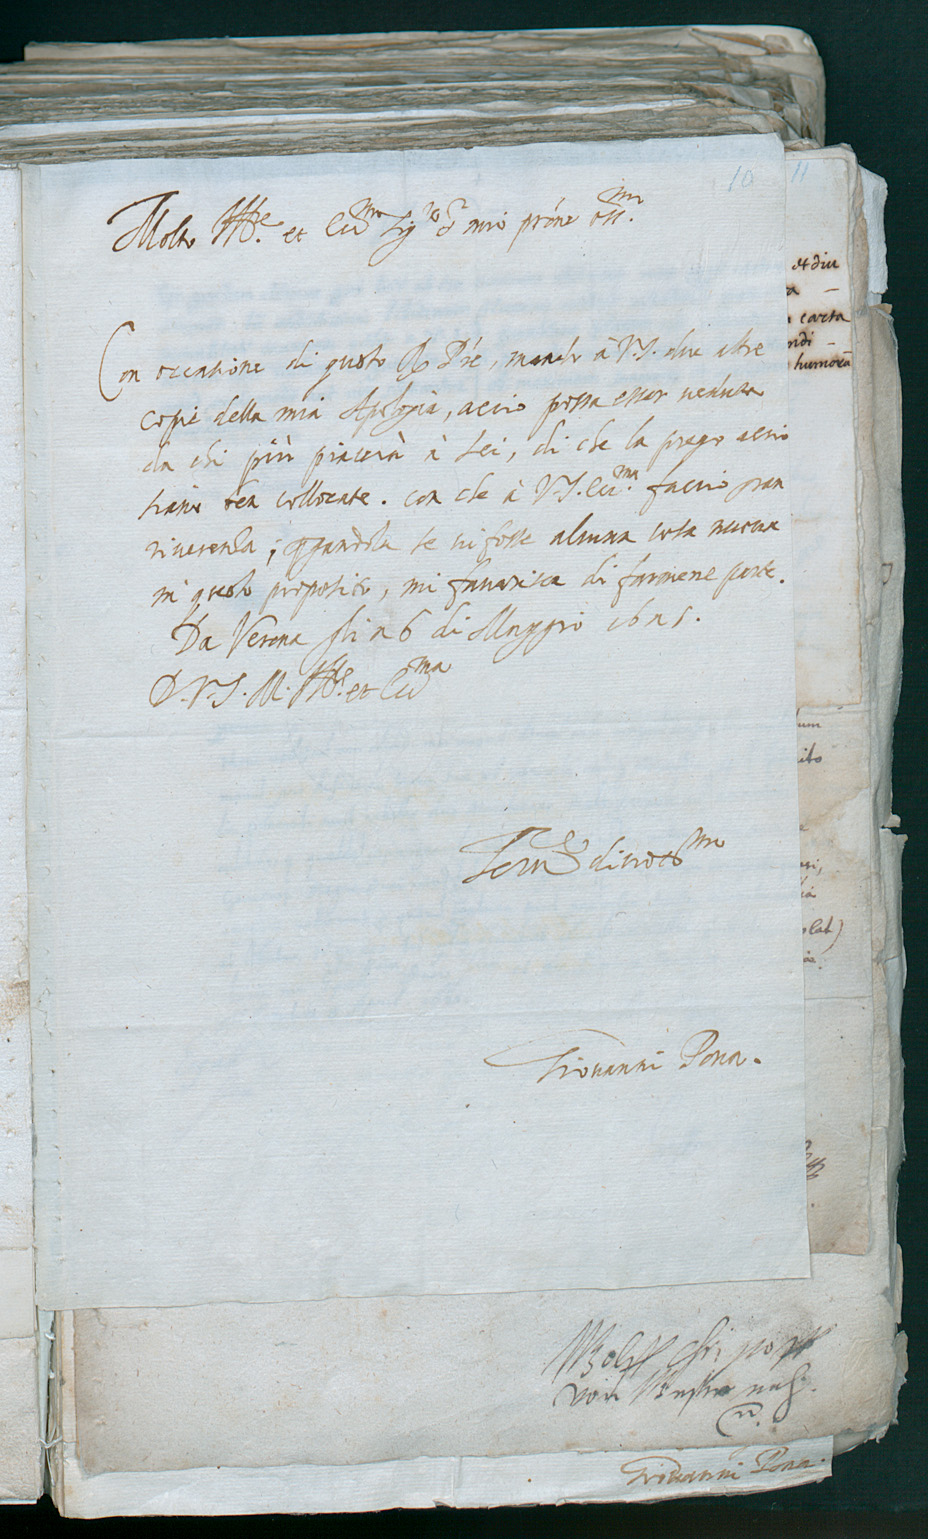 10 11
Molto Ill.re et Ecc.mo Sig.r mio prone oss.mo
Con occasione di questo R. P're, mando à V.S. due altre
copie della mia Apologia, accio possa esser veduta
da chi più piacerà à Lei, di che la prego accio
siano ben collocate. con che à V.S. Ecc.ma faccio gran
riverenza; se vi fosse alcuna cosa nuova
in questo proposito, mi favorisca di farmene parte.
Da Verona li 26 di Maggio 1625.
D.V.S. M. Ill.re et Ecc.ma
Ser.re divotiss.mo
Giovanni Pona.
et diu
a
carta
ndi
humora
lum
ito
olab)
von
Giovanni Pona.